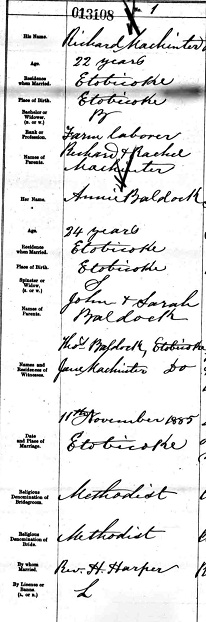 013108 1
His Name. Richard Mackinter
Age. 22 years
Residence when Married. Etobicoke
Place of Birth. Etobicoke
Bachelor or Widower. (B. or W.) B
Rank or Profession. Farm laborer
Names of Parents. Richard & Rachel
Mackinter
Her Name. Annie Baldock
Age. 24 years
Residence when Married. Etobicoke
Place of Birth. Etobicoke
Spinster or Widow. (S. or W.) S
Names of Parents. John & Sarah
Baldock
Names and Residences of Witnesses. Thos. Baldock, Etobicoke
Jane Mackinter Do
Date and Place of Marriage. 11th November 1885
Etobicoke
Religious Denomination of Bridegroom. Methodist
Religious Denomination of Bride. Methodist
By whom Married. Rev. H. Harper
By License or Banns. (L. or B.) L